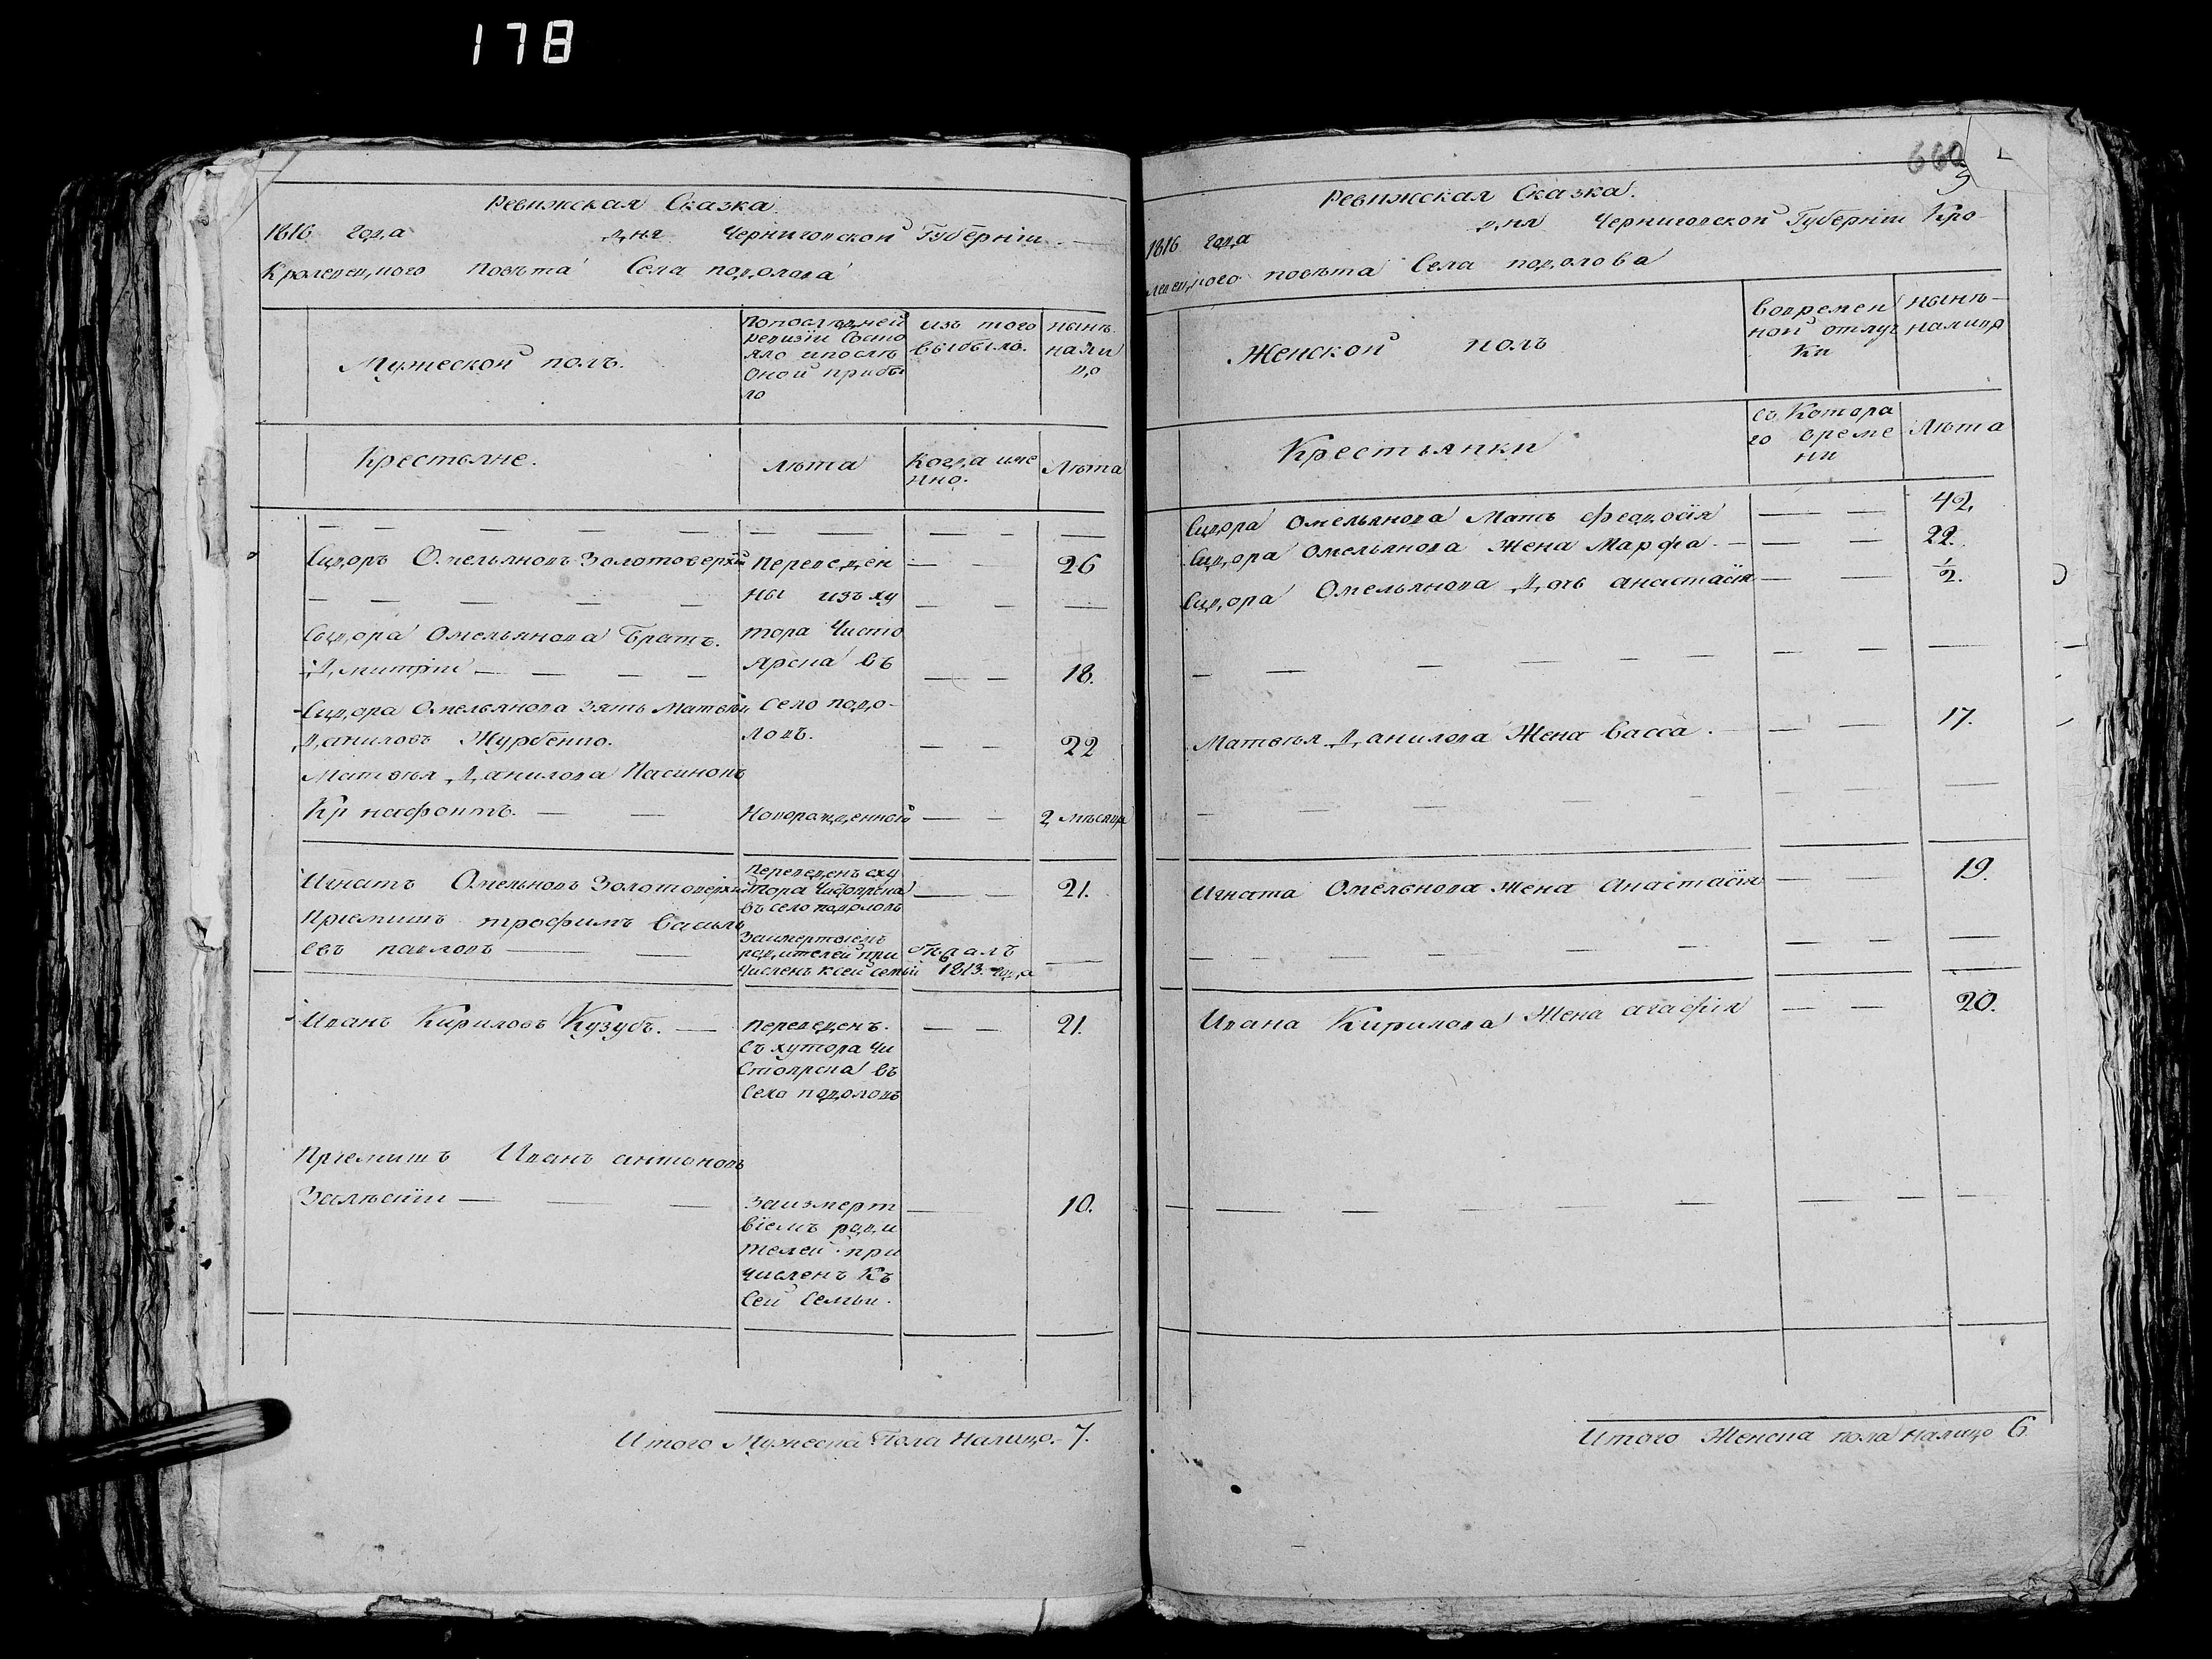 178
660
5
Ревижская Сказка.
1816 года дня Черниговской Губерніи. —
Кролевецкого Повѣта Села подолова
Мужеской полъ.
Попоследней ревизіи Состояло ипослѣ оной прибыло
изъ того выбыло.
нынѣ налицо
Крестьяне.
лѣта
Когда имянно.
Лѣта
Сидоръ Омельяновъ Золотоверхій
Переведенны изъ хутора Чистоярска въ Село подоловъ.
26
Сидора Омельянова Братъ.
Дмитріи — 18.
Сидора Омельянова Зять Матвѣй
Даниловъ Журбенко. 22
Матвѣя Данилова Пасинокъ
Ксенофонтъ. — Новорожденной — 2 мѣсяца
Игнатъ Омельновъ Золотоверхій
переведенъ сху
въ село подоловъ
21.
Приемишъ трофимъ Василь
евъ павловъ —
Заизмертвіемъ
родителей при
численъ ксей семьи
1813. года
Иванъ Кириловъ Кузубъ. — переведенъ. — 21.
съ хутора Чи
стоярска въ
Село подоловъ
Приемишъ Иванъ антоновъ
Залѣскіи — Заизмерт — 10.
віемъ роди
телей при
численъ Къ
Сей Семьи.
Итого Мужеска Пола Налицо. 7.
Ревижская Сказка.
1816 года дня Черниговской Губерніи Кро-
левецкого повѣта Села подолова
Женской полъ
Вовремен
ной отлуч
ки
нынѣ
налицо
Крестьянки
съ Котора
го време
ни
Лѣта
Сидора Омельянова Мать Феодосія — 42.
Сидора Омельянова Жена Марфа. — 22.
Сидора Омельянова Дочь анастасія — ½.
Матвѣя Данилова Жена Васса. — 17.
Игната Омельнова жена Анастасія — 19.
Ивана Кирилова Жена агафія — 20.
Итого Женска пола налицо 6